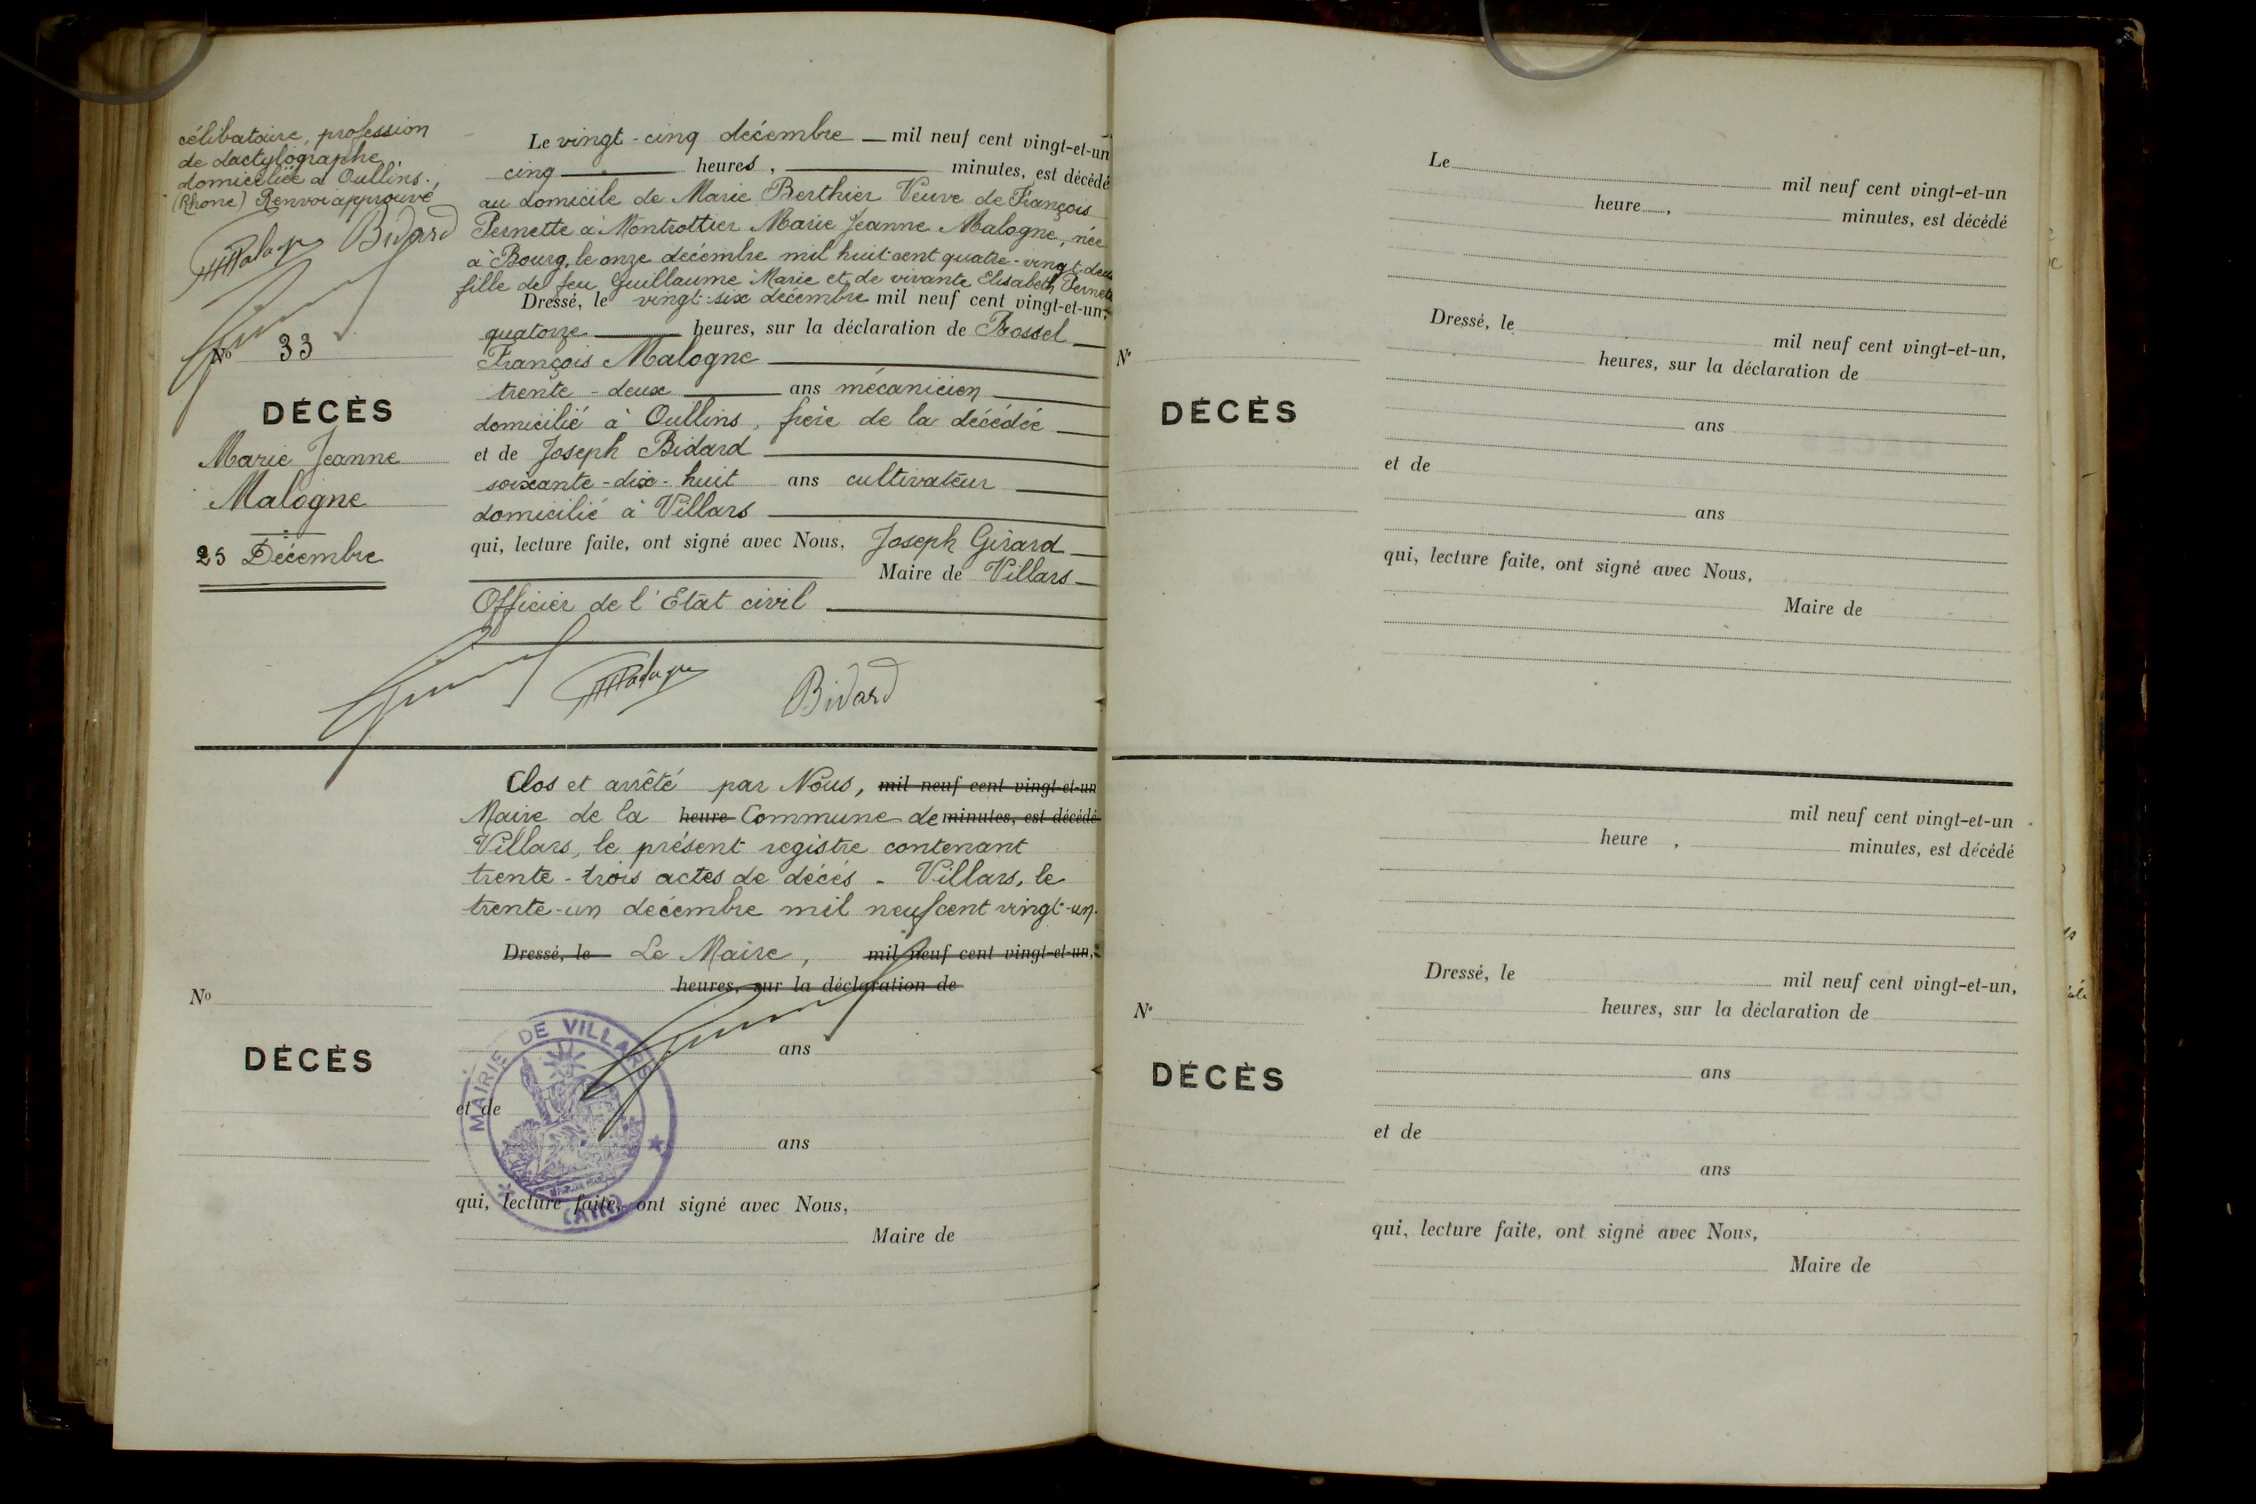 célibataire, profession
de dactylographe,
domiciliée à Oullins.,
(Rhône) Renvoi approuvé
Bidard
No 33
DÉCÈS
Marie Jeanne
Malogne
25 Décembre
Le vingt-cinq décembre mil neuf cent vingt-et-un
cinq heures, minutes, est décédé
au domicile de Marie Berthier Veuve de François
Pernette à Montrottier Marie Jeanne Malogne, née
à Bourg, le onze décembre mil huit cent quatre-vingt-deux
fille de feu Guillaume Marie et de vivante Elisabeth Pernette
Dressé, le vingt-six décembre mil neuf cent vingt-et-un,
quatorze heures, sur la déclaration de Bossel
François Malogne
trente-deux ans mécanicien
domicilié à Oullins, frère de la décédée
et de Joseph Bidard
soixante-dix-huit ans cultivateur
domicilié à Villars
qui, lecture faite, ont signé avec Nous, Joseph Girard
Maire de Villars
Officier de l'Etat civil
Bidard
Clos et arrêté par Nous, mil neuf cent vingt-et-un
Maire de la heure Commune de minutes, est décédé
Villars, le présent registre contenant
trente-trois actes de décés - Villars, le
trente-un décembre mil neuf cent vingt-un.
Dressé, le Le Maire, mil neuf cent vingt-et-un,
heures, sur la déclaration de
No
DÉCÈS
MAIRIE DE VILLARS
(AIN)
ans
et de
ans
qui, lecture faite, ont signé avec Nous,
Maire de
Le mil neuf cent vingt-et-un
heure, minutes, est décédé
Dressé, le mil neuf cent vingt-et-un,
N°
heures, sur la déclaration de
DÉCÈS
ans
et de
ans
qui, lecture faite, ont signé avec Nous,
Maire de
mil neuf cent vingt-et-un
heure, minutes, est décédé
Dressé, le mil neuf cent vingt-et-un,
N°
heures, sur la déclaration de
DÉCÈS
ans
et de
ans
qui, lecture faite, ont signé avec Nous,
Maire de